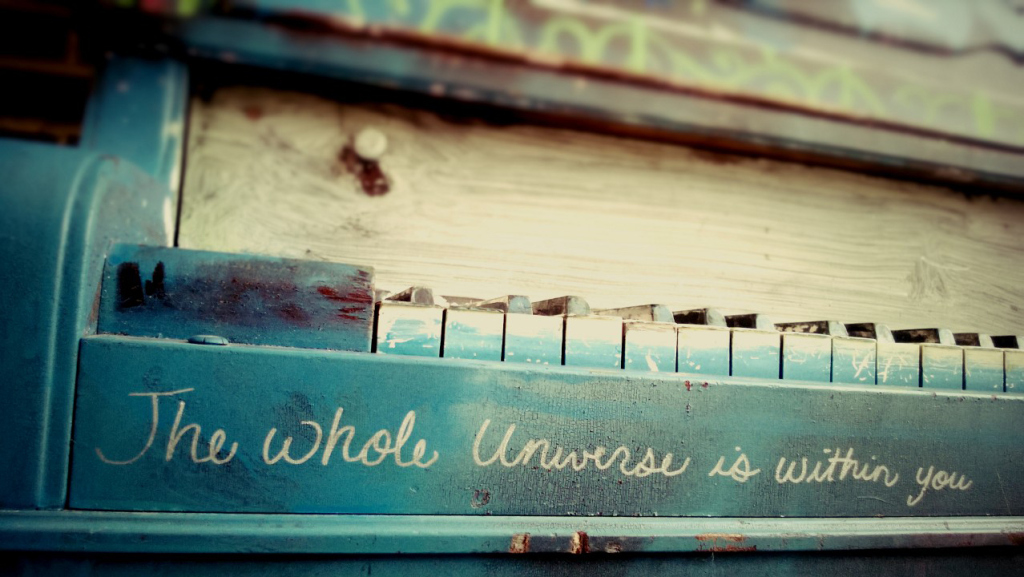 The whole Universe is within you